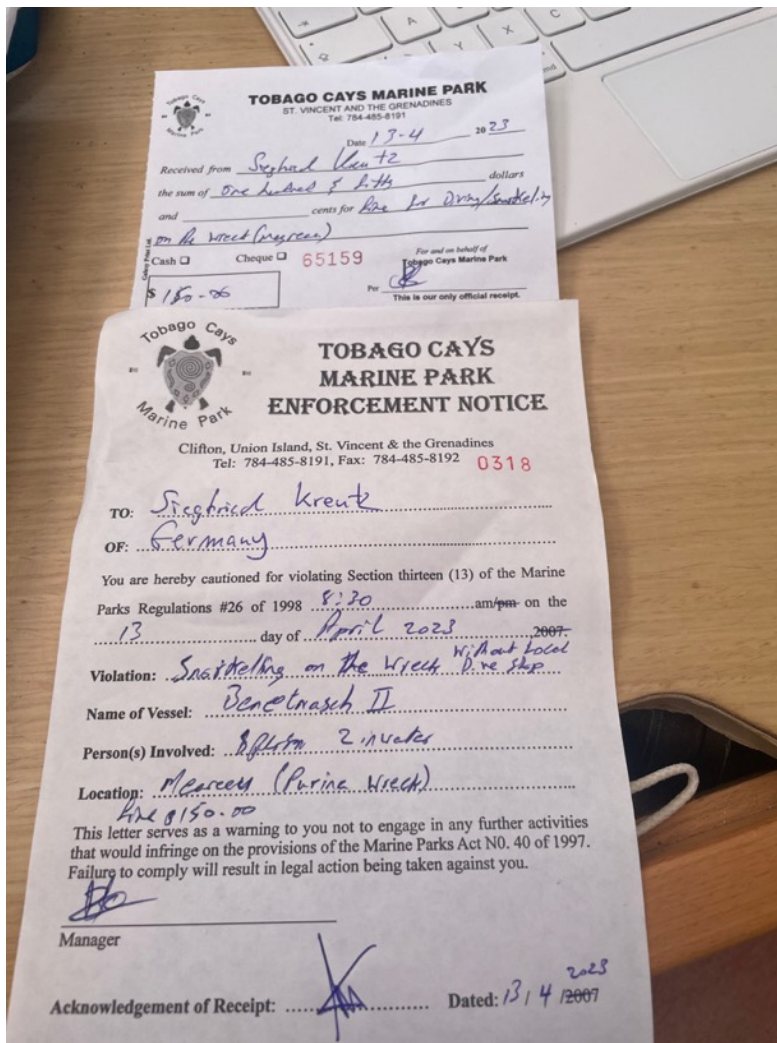 Tobago Cays
Marine Park
TOBAGO CAYS MARINE PARK
ST. VINCENT AND THE GRENADINES
Tel: 784-485-8191
Date 13-4 2023
Received from Siegfried Kreutz
the sum of One hundred & fifty dollars
and cents for fine for Diving/Snorkeling
on the wreck (mayreau)
Cash Cheque 65159
For and on behalf of
Tobago Cays Marine Park
$ 150-00
Per
This is our only official receipt.
Tobago Cays
Marine Park
TOBAGO CAYS
MARINE PARK
ENFORCEMENT NOTICE
Clifton, Union Island, St. Vincent & the Grenadines
Tel: 784-485-8191, Fax: 784-485-8192 0318
TO: Siegfried Kreutz
OF: Germany
You are hereby cautioned for violating Section thirteen (13) of the Marine
Parks Regulations #26 of 1998 8:30 am/pm on the
13 day of April 2023 2007.
Violation: Snorkelling on the Wreck Without Local Dive shop
Name of Vessel: Benetnasch II
Person(s) Involved: 2 in water
Location: (Purina Wreck)
fine $150.00
This letter serves as a warning to you not to engage in any further activities
that would infringe on the provisions of the Marine Parks Act N0. 40 of 1997.
Failure to comply will result in legal action being taken against you.
Manager
Acknowledgement of Receipt: Dated: 13 / 4 /2007 2023